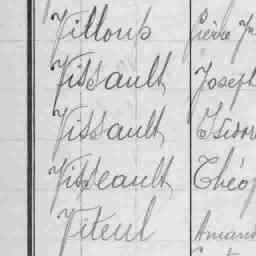 Villoup Pierre
Vissault Joseph
Vissault Isidor
Visseault Théop
Viteul Amand